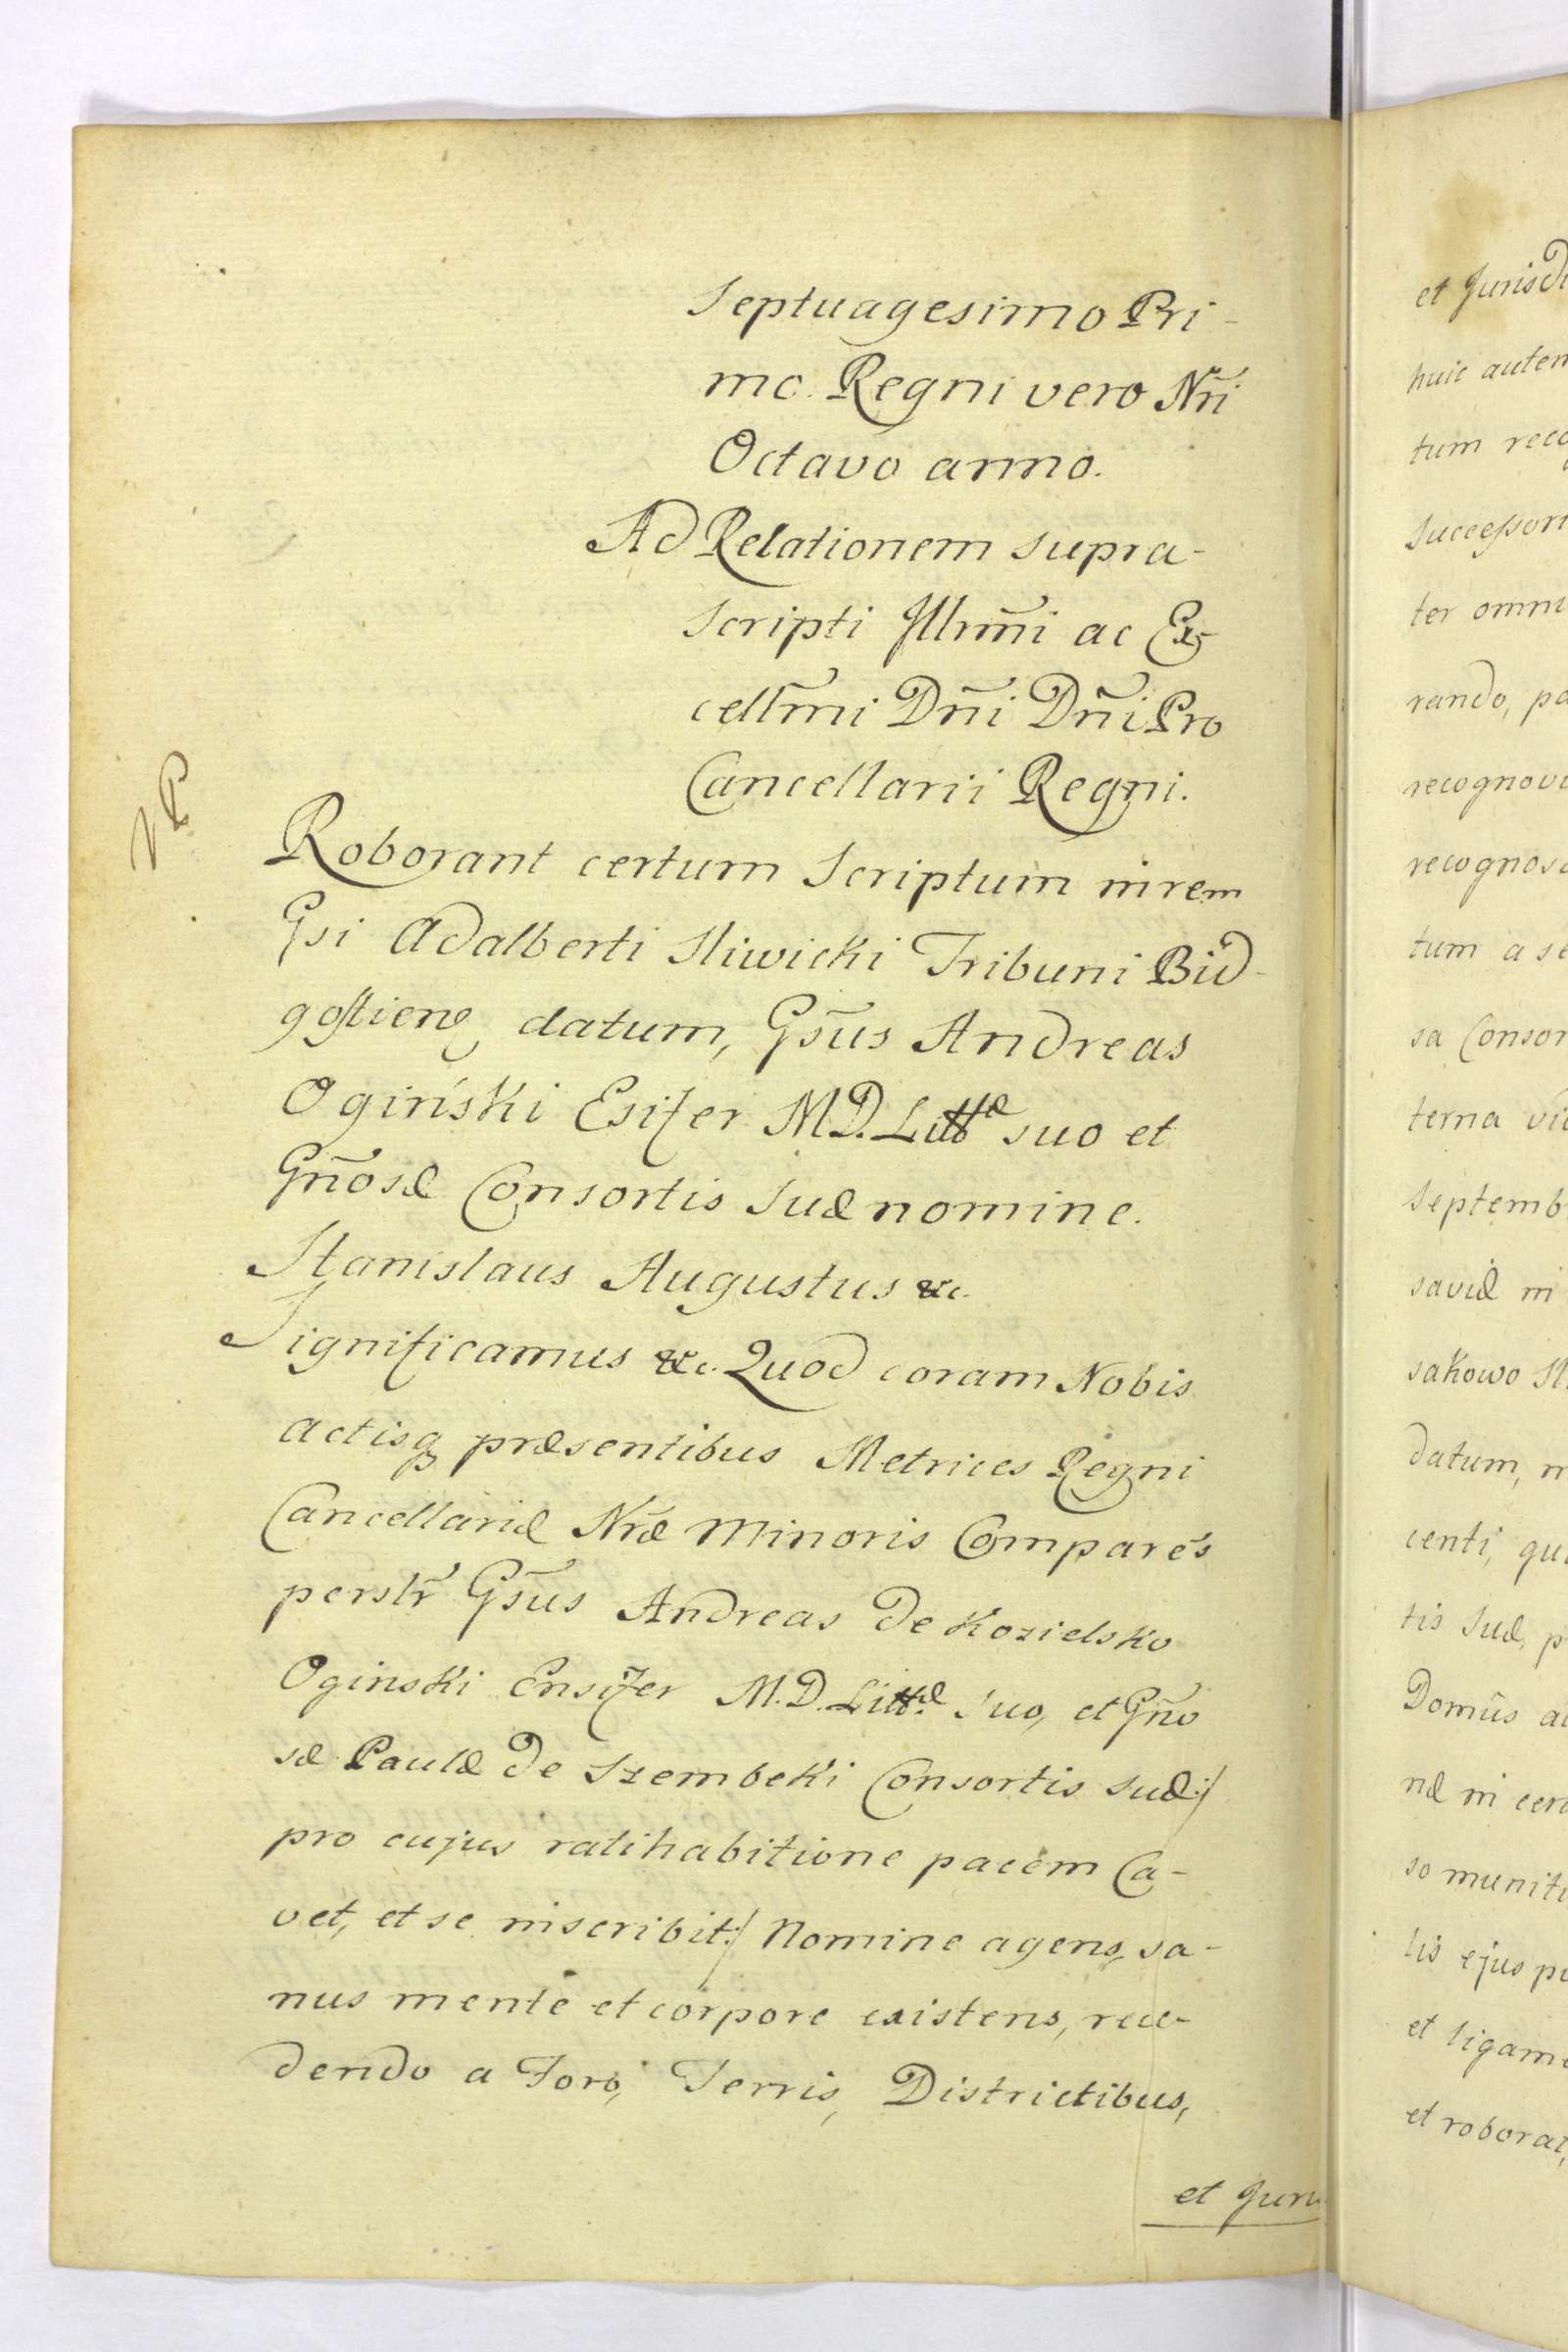 Septuagesimo Pri-
mo. Regni vero Nr̃i
Octavo anno.
Ad Relationem supra-
scripti Illmi ac Ex-
cellm̃i Dñi Dñi Pro
Cancellarii Regni.
Roborant certum Scriptum in rem
Gsi Adalberti Sliwicki Tribuni Bid-
gostien datum, Gsũs Andreas
Ogiński Esifer M.D. Littæ suo et
Gñosæ Consortis suæ nomine.
Stanislaus Augustus &c.
Significamus &c. Quod coram Nobis
actisq præsentibus Metrices Regni
Cancellariæ Nræ Minoris Comparẽs
perslr̃ Gsũs Andreas de Kozielsko
Oginski Ensifer M.D. Littæ suo, et Gño
sæ Paulæ de Szembeki Consortis suæ:/
pro cujus ratihabitione pacem Ca-
vet, et se inscribit:/ Nomine agens, sa-
nus mente et corpore existens, rece-
dendo a Foro, Terris, Districtibus,
et Juris
et Jurisdi
huic autem
tum reco
Successori
ter omni
rando, pa
recognovi
recognosc
tum a se
sa Consor
terna vi
Septemb
saviæ in
sakowo Sl
datum, m
centi, qu
tis suæ, p
Domũs a
næ in cer
so muniti
lis ejus p
et ligam
et roborat,